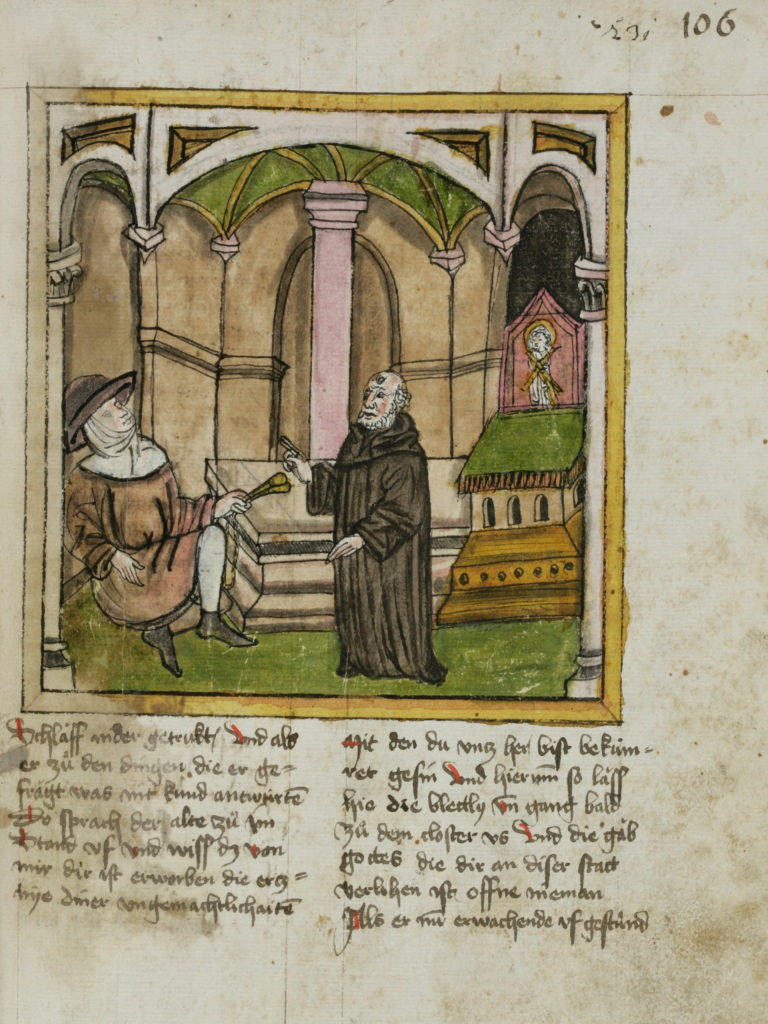 106
Schlaͤff nider getrukt / Vnd als
er zuͤ den dingen die er ge=
fragt was nit kund antwürtē
Do sprach der alte zuͤ jm
Stand vf vnd wiss dz von
mir dir ist erworben die ercz=
nÿe diner vngemaͤchlichaitē
Mit den du vncz her bist bekúm=
ret gesin Vnd hierum̄ so laͤss
hie die bletly vn̄ gang bald
zuͤ dem closter vs Vnd die gaͤb
gottes die dir an diser statt
verlihen ist offne nieman
Als er nu erwachende vf gestuͤnd